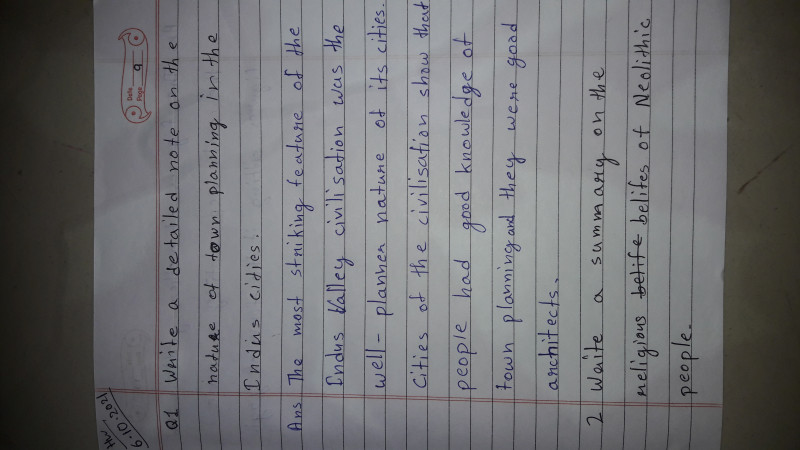 HW
6.10.2021
Date
Page 9
Q1 Write a detailed note on the
nature of town planning in the
Indus cities.
Ans The most striking feature of the
Indus Valley civilisation was the
well-planner nature of its cities.
Cities of the civilisation show that
people had good knowledge of
town planning and they were good
architects.
2 Write a summary on the
religious belife belifes of Neolithic
people.